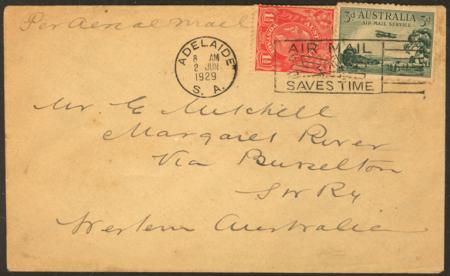 Per Aerial Mail
3d AUSTRALIA 3d
AIR MAIL SERVICE
ADELAIDE
8 AM
2 JUN
1929
S. A.
AIR MAIL
SAVES TIME
Mr E Mitchell
Margaret River
Via Busselton
S W Ry
Western Australia